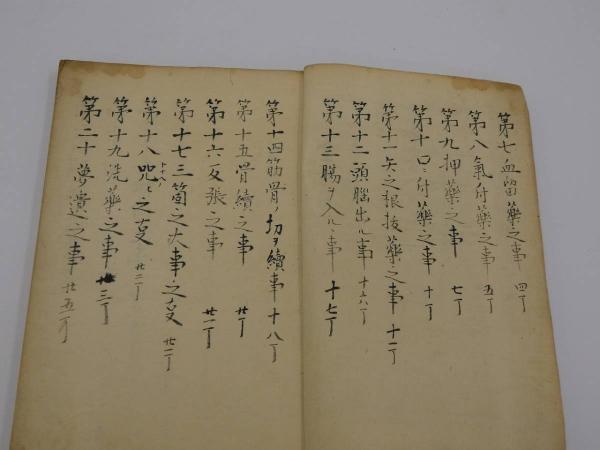 第七血留薬之事 四丁
第八氣付薬之事 五丁
第九押薬之事 七丁
第十口ニ付薬之事 十丁
第十一矢之根抜薬之事 十一丁
第十二頭脳出ル事 十六丁
第十三腸ヲ入ルヽ事 十七丁
第十四筋骨ノ切ヲ續事 十八丁
第十五骨續之事 廿丁
第十六反張之事 廿一丁
第十七三箇之大事之叓 廿二丁
第十八呪ヒ之叓 廿二丁
第十九洗薬之事 廿三丁
第二十夢遺之事 廿五丁